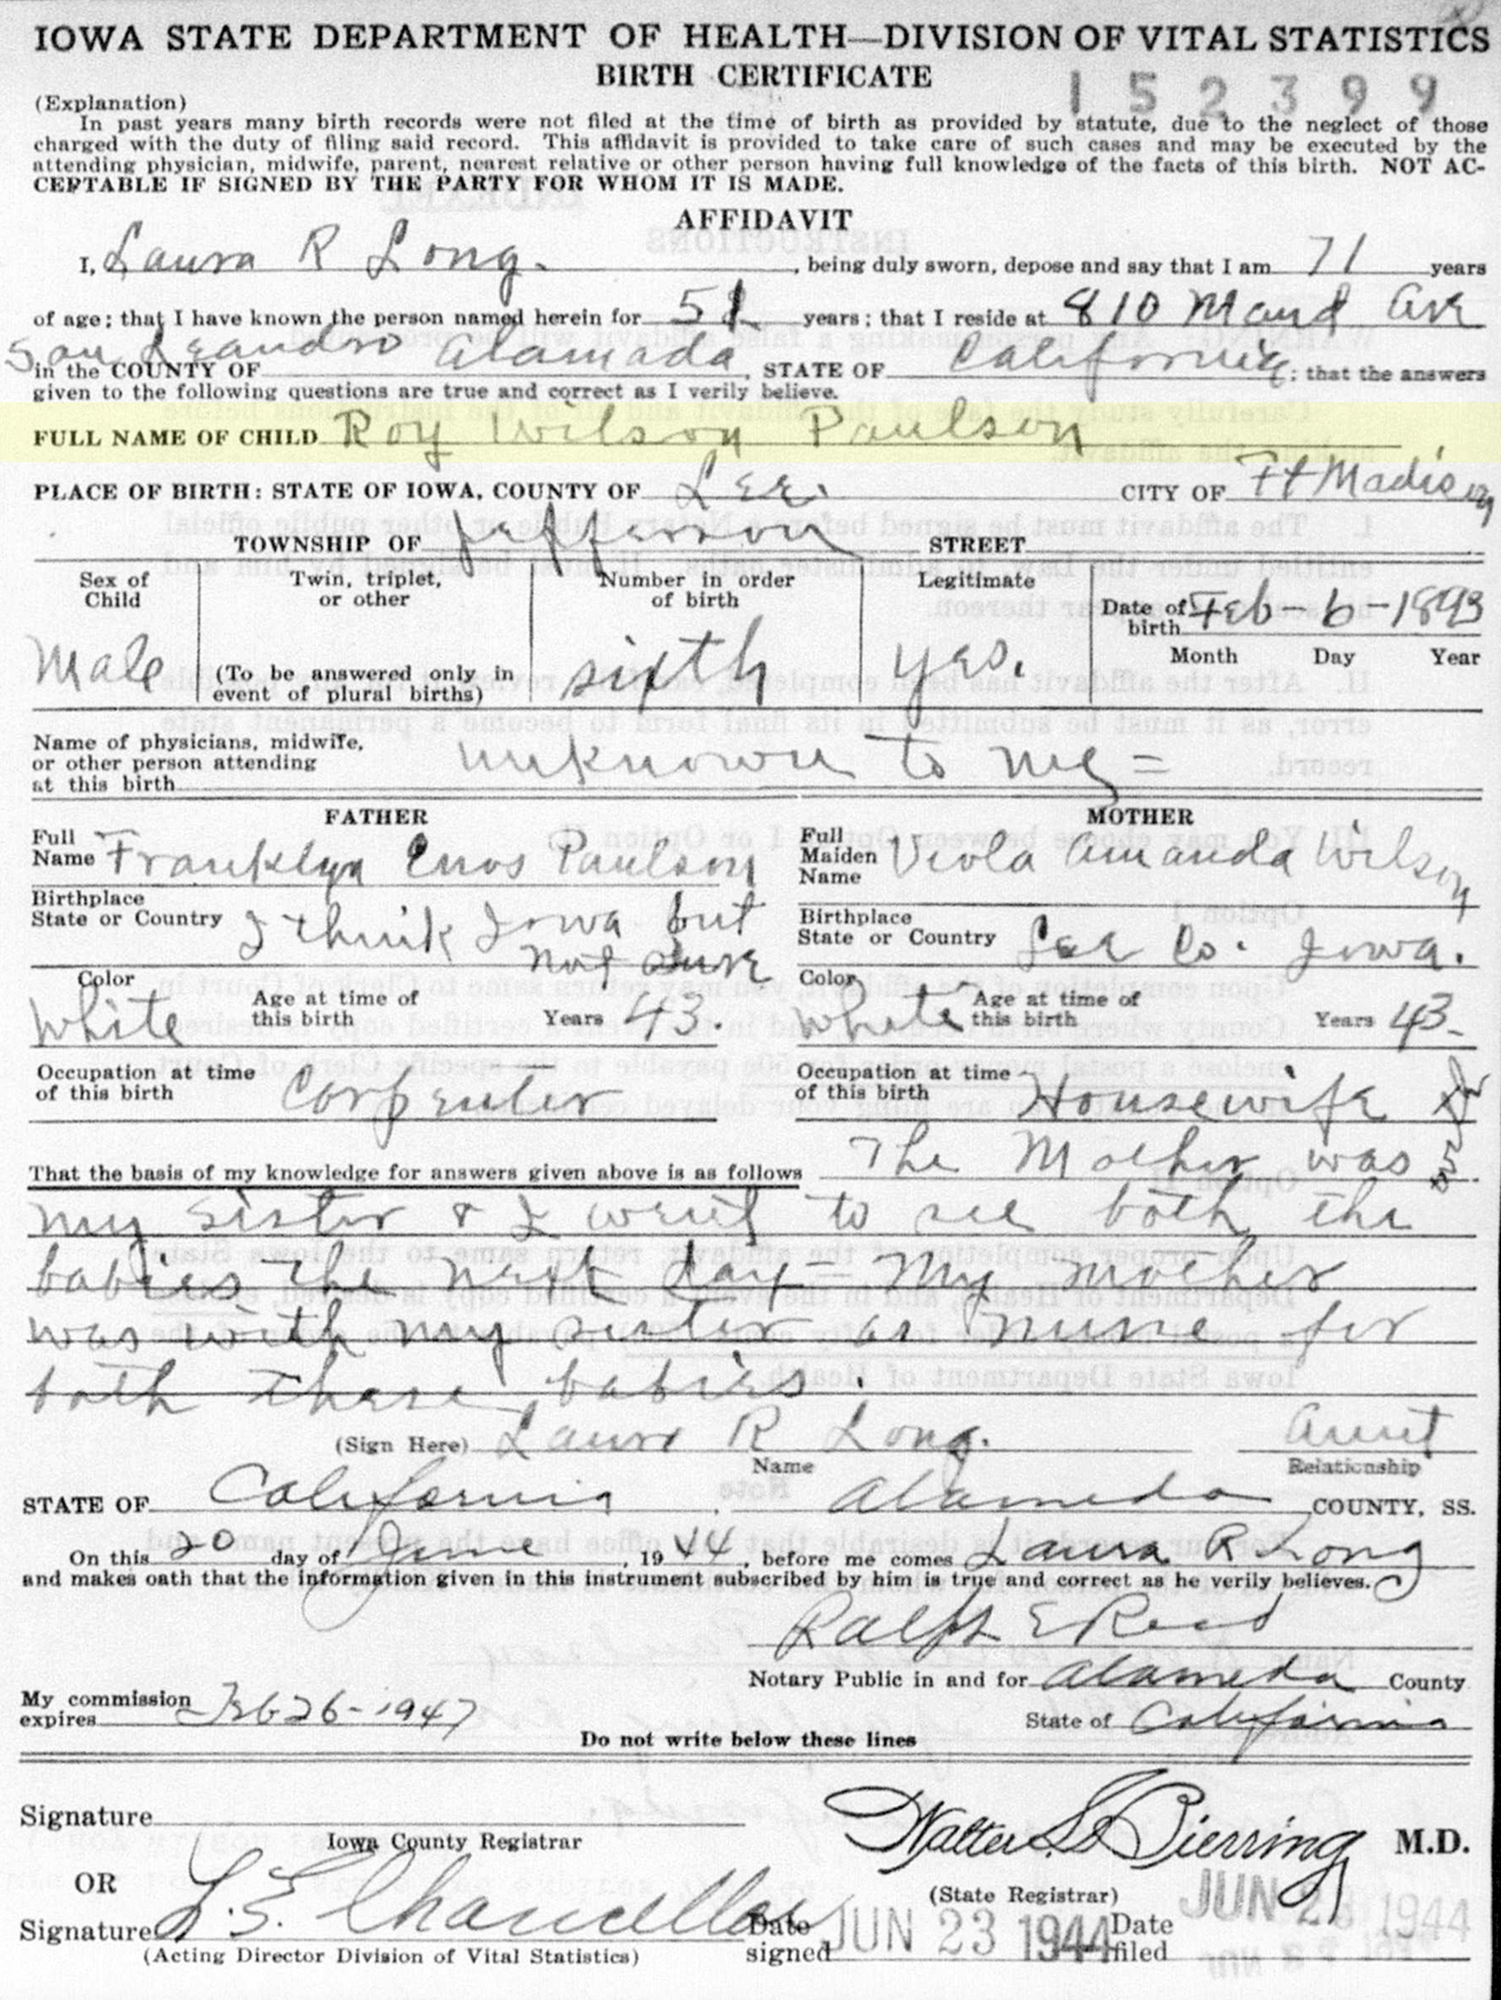 IOWA STATE DEPARTMENT OF HEALTH—DIVISION OF VITAL STATISTICS
BIRTH CERTIFICATE
152399
(Explanation)
In past years many birth records were not filed at the time of birth as provided by statute, due to the neglect of those
charged with the duty of filing said record. This affidavit is provided to take care of such cases and may be executed by the
attending physician, midwife, parent, nearest relative or other person having full knowledge of the facts of this birth. NOT AC-
CEPTABLE IF SIGNED BY THE PARTY FOR WHOM IT IS MADE.
AFFIDAVIT
I, Laura R Long. , being duly sworn, depose and say that I am 71 years
of age; that I have known the person named herein for 51 years; that I reside at 810 Maud Ave
San Leandro
in the COUNTY OF Alamada, STATE OF California; that the answers
given to the following questions are true and correct as I verily believe.
FULL NAME OF CHILD Roy Wilson Paulson
PLACE OF BIRTH: STATE OF IOWA, COUNTY OF Lee. CITY OF Ft Madison
TOWNSHIP OF Jefferson STREET
Sex of Child Male
Twin, triplet, or other (To be answered only in event of plural births)
Number in order of birth sixth
Legitimate yes.
Date of birth Feb-6-1893
Month Day Year
Name of physicians, midwife, or other person attending at this birth unknown to me =
FATHER MOTHER
Full Name Franklyn Enos Paulson Full Maiden Name Viola Amanda Wilson
Birthplace State or Country I think Iowa but not sure Birthplace State or Country Lee Co. Iowa.
Color White Age at time of this birth Years 43. Color White Age at time of this birth Years 43.
Occupation at time of this birth Carpenter Occupation at time of this birth Housewife
That the basis of my knowledge for answers given above is as follows The Mother was
my sister & I went to see both the
babies the next day = My mother
was with my sister as nurse for
both these babies.
(Sign Here) Laura R Long. Aunt
Name Relationship
STATE OF California, Alameda COUNTY, SS.
On this 20 day of June, 1944, before me comes Laura R Long
and makes oath that the information given in this instrument subscribed by him is true and correct as he verily believes.
Ralph E Reed
Notary Public in and for Alameda County
My commission expires Feb 26-1947 State of California
Do not write below these lines
Signature
Iowa County Registrar
Walter L. Bierring M.D.
OR
(State Registrar)
Signature L. E. Chancellor Date signed JUN 23 1944 Date filed JUN 23 1944
(Acting Director Division of Vital Statistics)